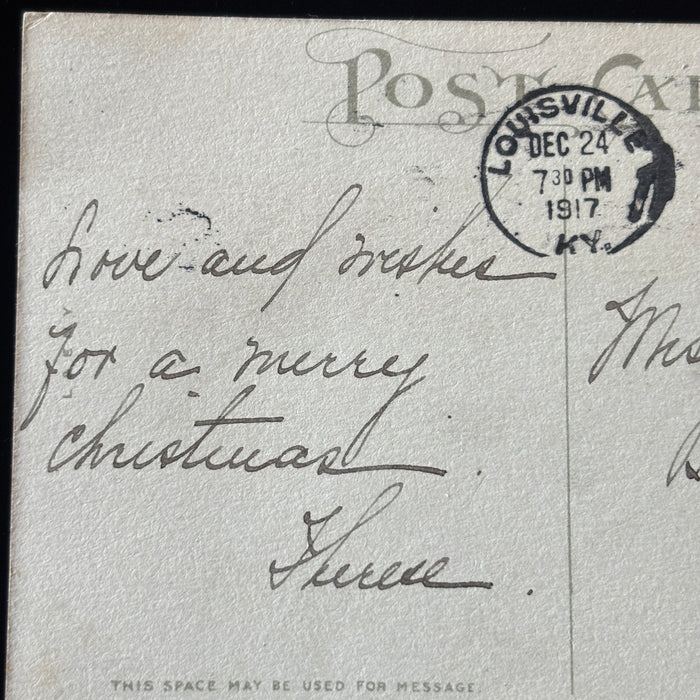 POST CA
LOUISVILLE
DEC 24
7 30 PM
1917
KY.
Love and wishes
for a merry
christmas.
Therese.
THIS SPACE MAY BE USED FOR MESSAGE.